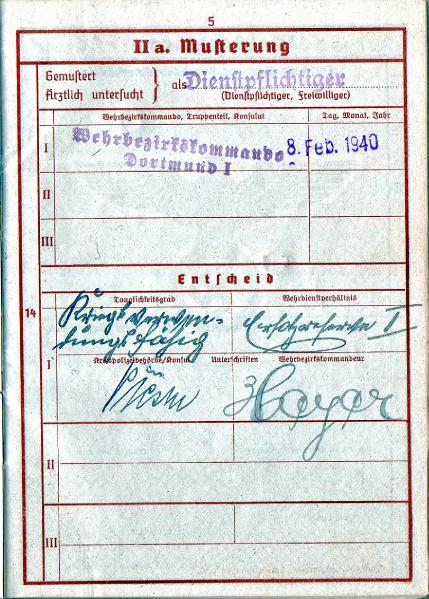 5
IIa. Musterung
Gemustert
ärztlich untersucht } als Dienstpflichtiger
(Dienstpflichtiger, Freiwilliger)
Wehrbezirkskommando, Truppenteil, Konsulat
Tag, Monat, Jahr
I
Wehrbezirkskommando
Dortmund I
8. Feb. 1940
II
III
Entscheid
14
Tauglichkeitsgrad
Wehrdienstverhältnis
Kriegsverwen-
dungsfähig
Ersatzreserve I
I
Kreispolizeibehörde/Konsul
Unterschriften
Wehrbezirkskommandeur
II
III